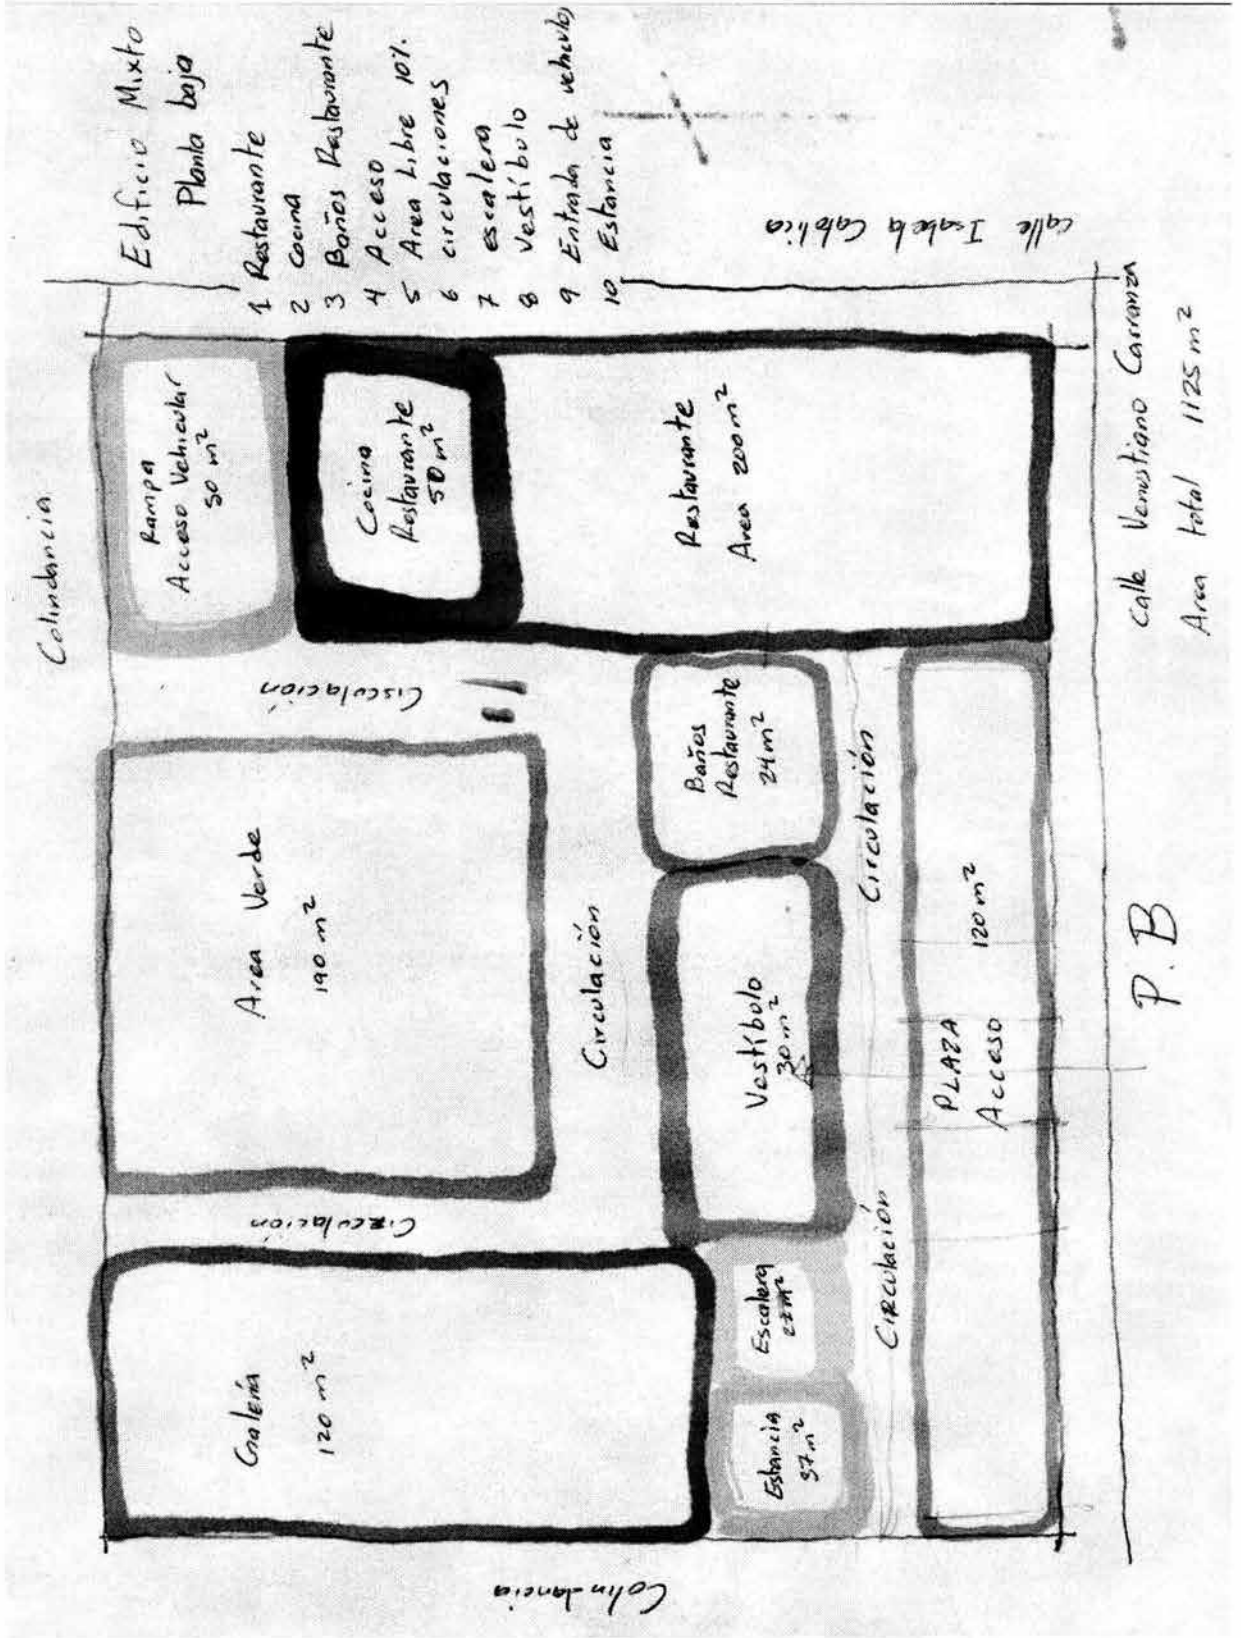 Edificio Mixto
Planta baja
1 Restaurante
2 Cocina
3 Baños Restaurante
4 Acceso
5 Area Libre 10%.
6 circulaciones
7 escalera
8 Vestíbulo
9 Entrada de vehiculos
10 Estancia
Colindancia
Colindancia
calle Isabela Catolica
Rampa
Acceso Vehicular
50 m²
Cocina
Restaurante
50 m²
Restaurante
Area 200 m²
Cisculación
Area Verde
190 m²
Circulación
Baños
Restaurante
24 m²
Vestíbulo
30 m²
Circulación
Circulación
Galería
120 m²
Escalera
Estancia
Circulación
PLAZA
Acceso
120 m²
P. B
Calle Venustiano Carranza
Area total 1125 m²